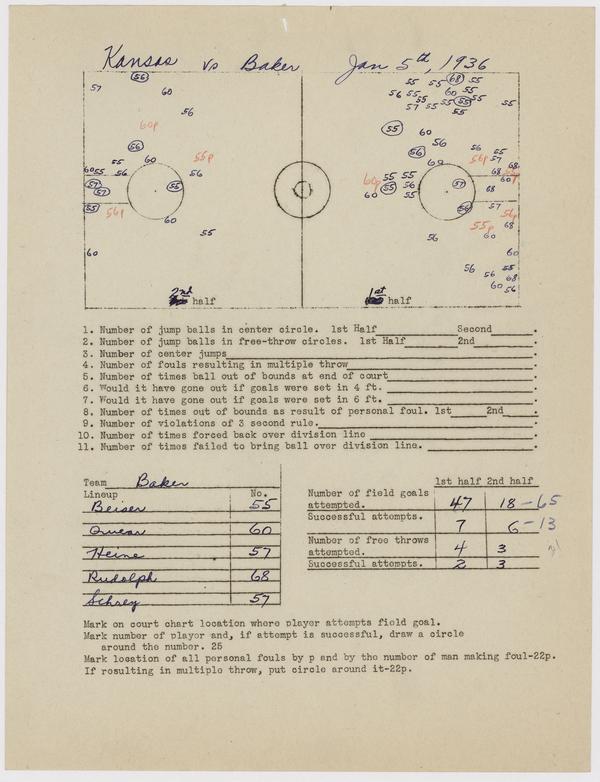 Kansas vs Baker Jan 5th, 1936
56
57
60
56
60p
56
55
60
55p
60 55
56
56
57
57
55
55
56p
60
55
60
2nd half
55 55 68 55
56 55 55 60 55 55
57 55 55 55
55
55
60
56
56
60
56 55
56p 57
68
68
60p 55 55
55 56
60 55
57
68
60
56
57
56p
55p 68
60
56
60
56 55
56 68
60 56
1st half
1. Number of jump balls in center circle. 1st Half Second .
2. Number of jump balls in free-throw circles. 1st Half 2nd .
3. Number of center jumps .
4. Number of fouls resulting in multiple throw .
5. Number of times ball out of bounds at end of court .
6. Would it have gone out if goals were set in 4 ft. .
7. Would it have gone out if goals were set in 6 ft. .
8. Number of times out of bounds as result of personal foul. 1st 2nd .
9. Number of violations of 3 second rule. .
10. Number of times forced back over division line .
11. Number of times failed to bring ball over division line. .
Team Baker
Lineup No.
Beiser 55
60
Heine 57
Rudolph 68
Schrey 57
1st half 2nd half
Number of field goals
attempted. 47 18 - 65
Successful attempts.
7 6 - 13
Number of free throws
attempted. 4 3
Successful attempts. 2 3
Mark on court chart location where player attempts field goal.
Mark number of player and, if attempt is successful, draw a circle
around the number. 25
Mark location of all personal fouls by p and by the number of man making foul-22p.
If resulting in multiple throw, put circle around it-22p.